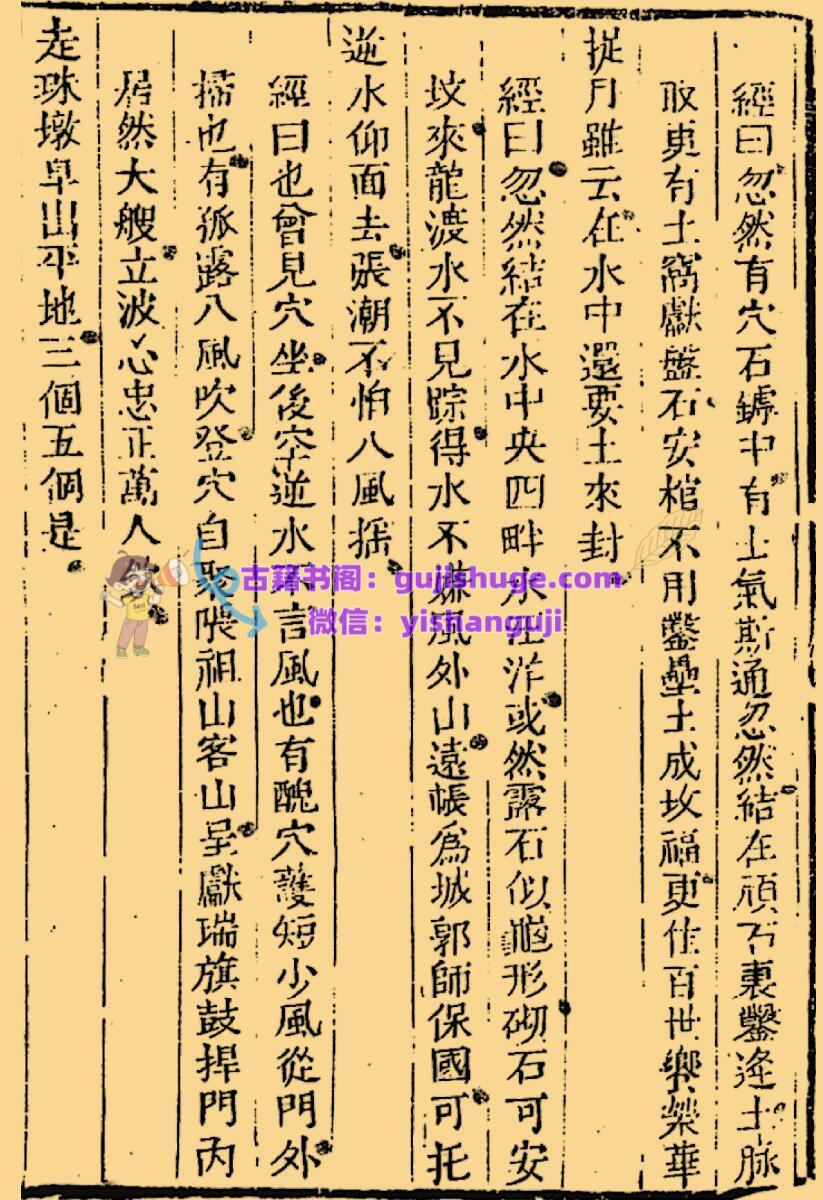 經曰忽然有穴石罅中有土氣斯通忽然結在頑石裏鑿逢土脉
取更有土窩獻盤石安棺不用鑿壘土成坟福更佳百世樂榮華
捉月雖云在水中還要土來封
經曰忽然結在水中央四畔水汪洋或然露石似 形砌石可安
坟來龍渡水不見踪得水不嫌風外山遠帳爲城郭師保國可托
逆水仰面去張潮不怕八風搖
經曰也曾見穴坐後空逆水不言風也有醜穴護短少風從門外
掃也有孤露八風吹登穴自聚隈祖山客山呈獻瑞旗鼓捍門内
居然大艘立波心忠正萬人
走珠墩阜出平地三個五個是
古籍书阁：gujishuge.com
微信：yishanguji